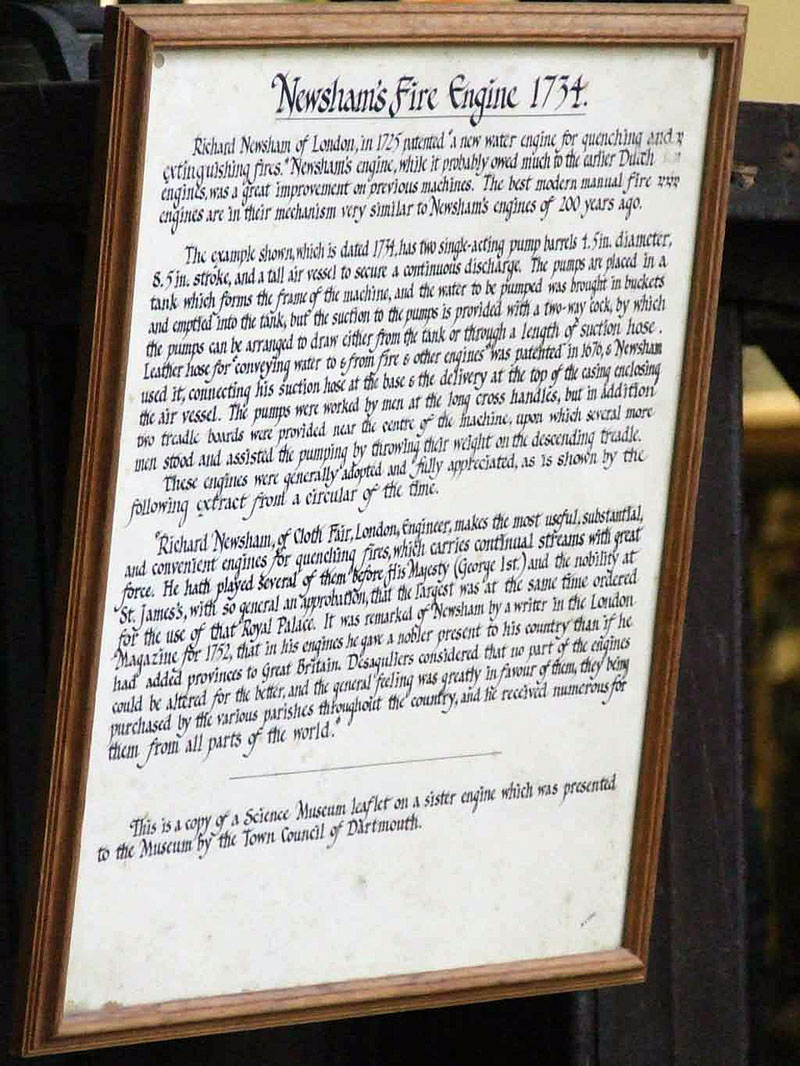 Newsham's Fire Engine 1734.
Richard Newsham of London, in 1725 patented "a new water engine for quenching and
extinguishing fires." Newsham's engine, while it probably owed much to the earlier Dutch
engines, was a great improvement on previous machines. The best modern manual fire
engines are in their mechanism very similar to Newsham's engines of 200 years ago.
The example shown, which is dated 1734, has two single-acting pump barrels 4.5in. diameter,
8.5in. stroke, and a tall air vessel to secure a continuous discharge. The pumps are placed in a
tank which forms the frame of the machine, and the water to be pumped was brought in buckets
and emptied into the tank, but the suction to the pumps is provided with a two-way cock, by which
the pumps can be arranged to draw either from the tank or through a length of suction hose.
Leather hose for "conveying water to & from fire & other engines" was patented in 1676, & Newsham
used it, connecting his suction hose at the base & the delivery at the top of the casing enclosing
the air vessel. The pumps were worked by men at the long cross handles, but in addition
two treadle boards were provided near the centre of the machine, upon which several more
men stood and assisted the pumping by throwing their weight on the descending treadle.
These engines were generally adopted and fully appreciated, as is shown by the
following extract from a circular of the time.
"Richard Newsham, of Cloth Fair, London, Engineer, makes the most useful, substantial,
and convenient engines for quenching fires, which carries continual streams with great
force. He hath played several of them before His Majesty (George 1st.) and the nobility at
St. James's, with so general an approbation, that the largest was at the same time ordered
for the use of that Royal Palace. It was remarked of Newsham by a writer in the London
Magazine for 1752, that in his engines he gave a nobler present to his country than if he
had added provinces to Great Britain. Desaguliers considered that no part of the engines
could be altered for the better, and the general feeling was greatly in favour of them, they being
purchased by the various parishes throughout the country, and he received numerous for
them from all parts of the world."
This is a copy of a Science Museum leaflet on a sister engine which was presented
to the Museum by the Town Council of Dartmouth.